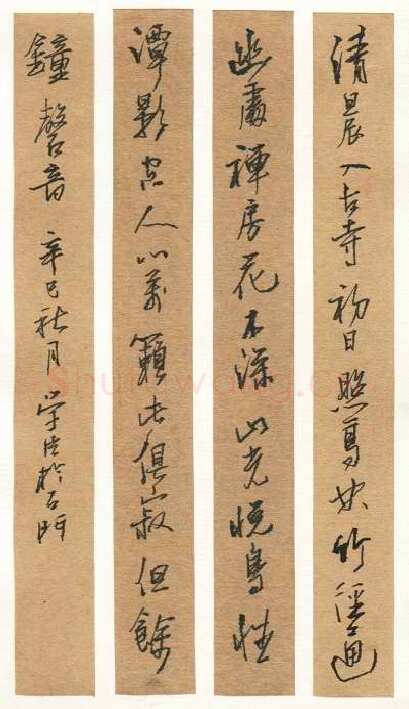 清晨入古寺初日照高林竹径通
幽處禅房花木深山光悦鳥性
潭影空人心萬籟此俱寂但餘
鐘磬音 辛巳秋月 学 於石門